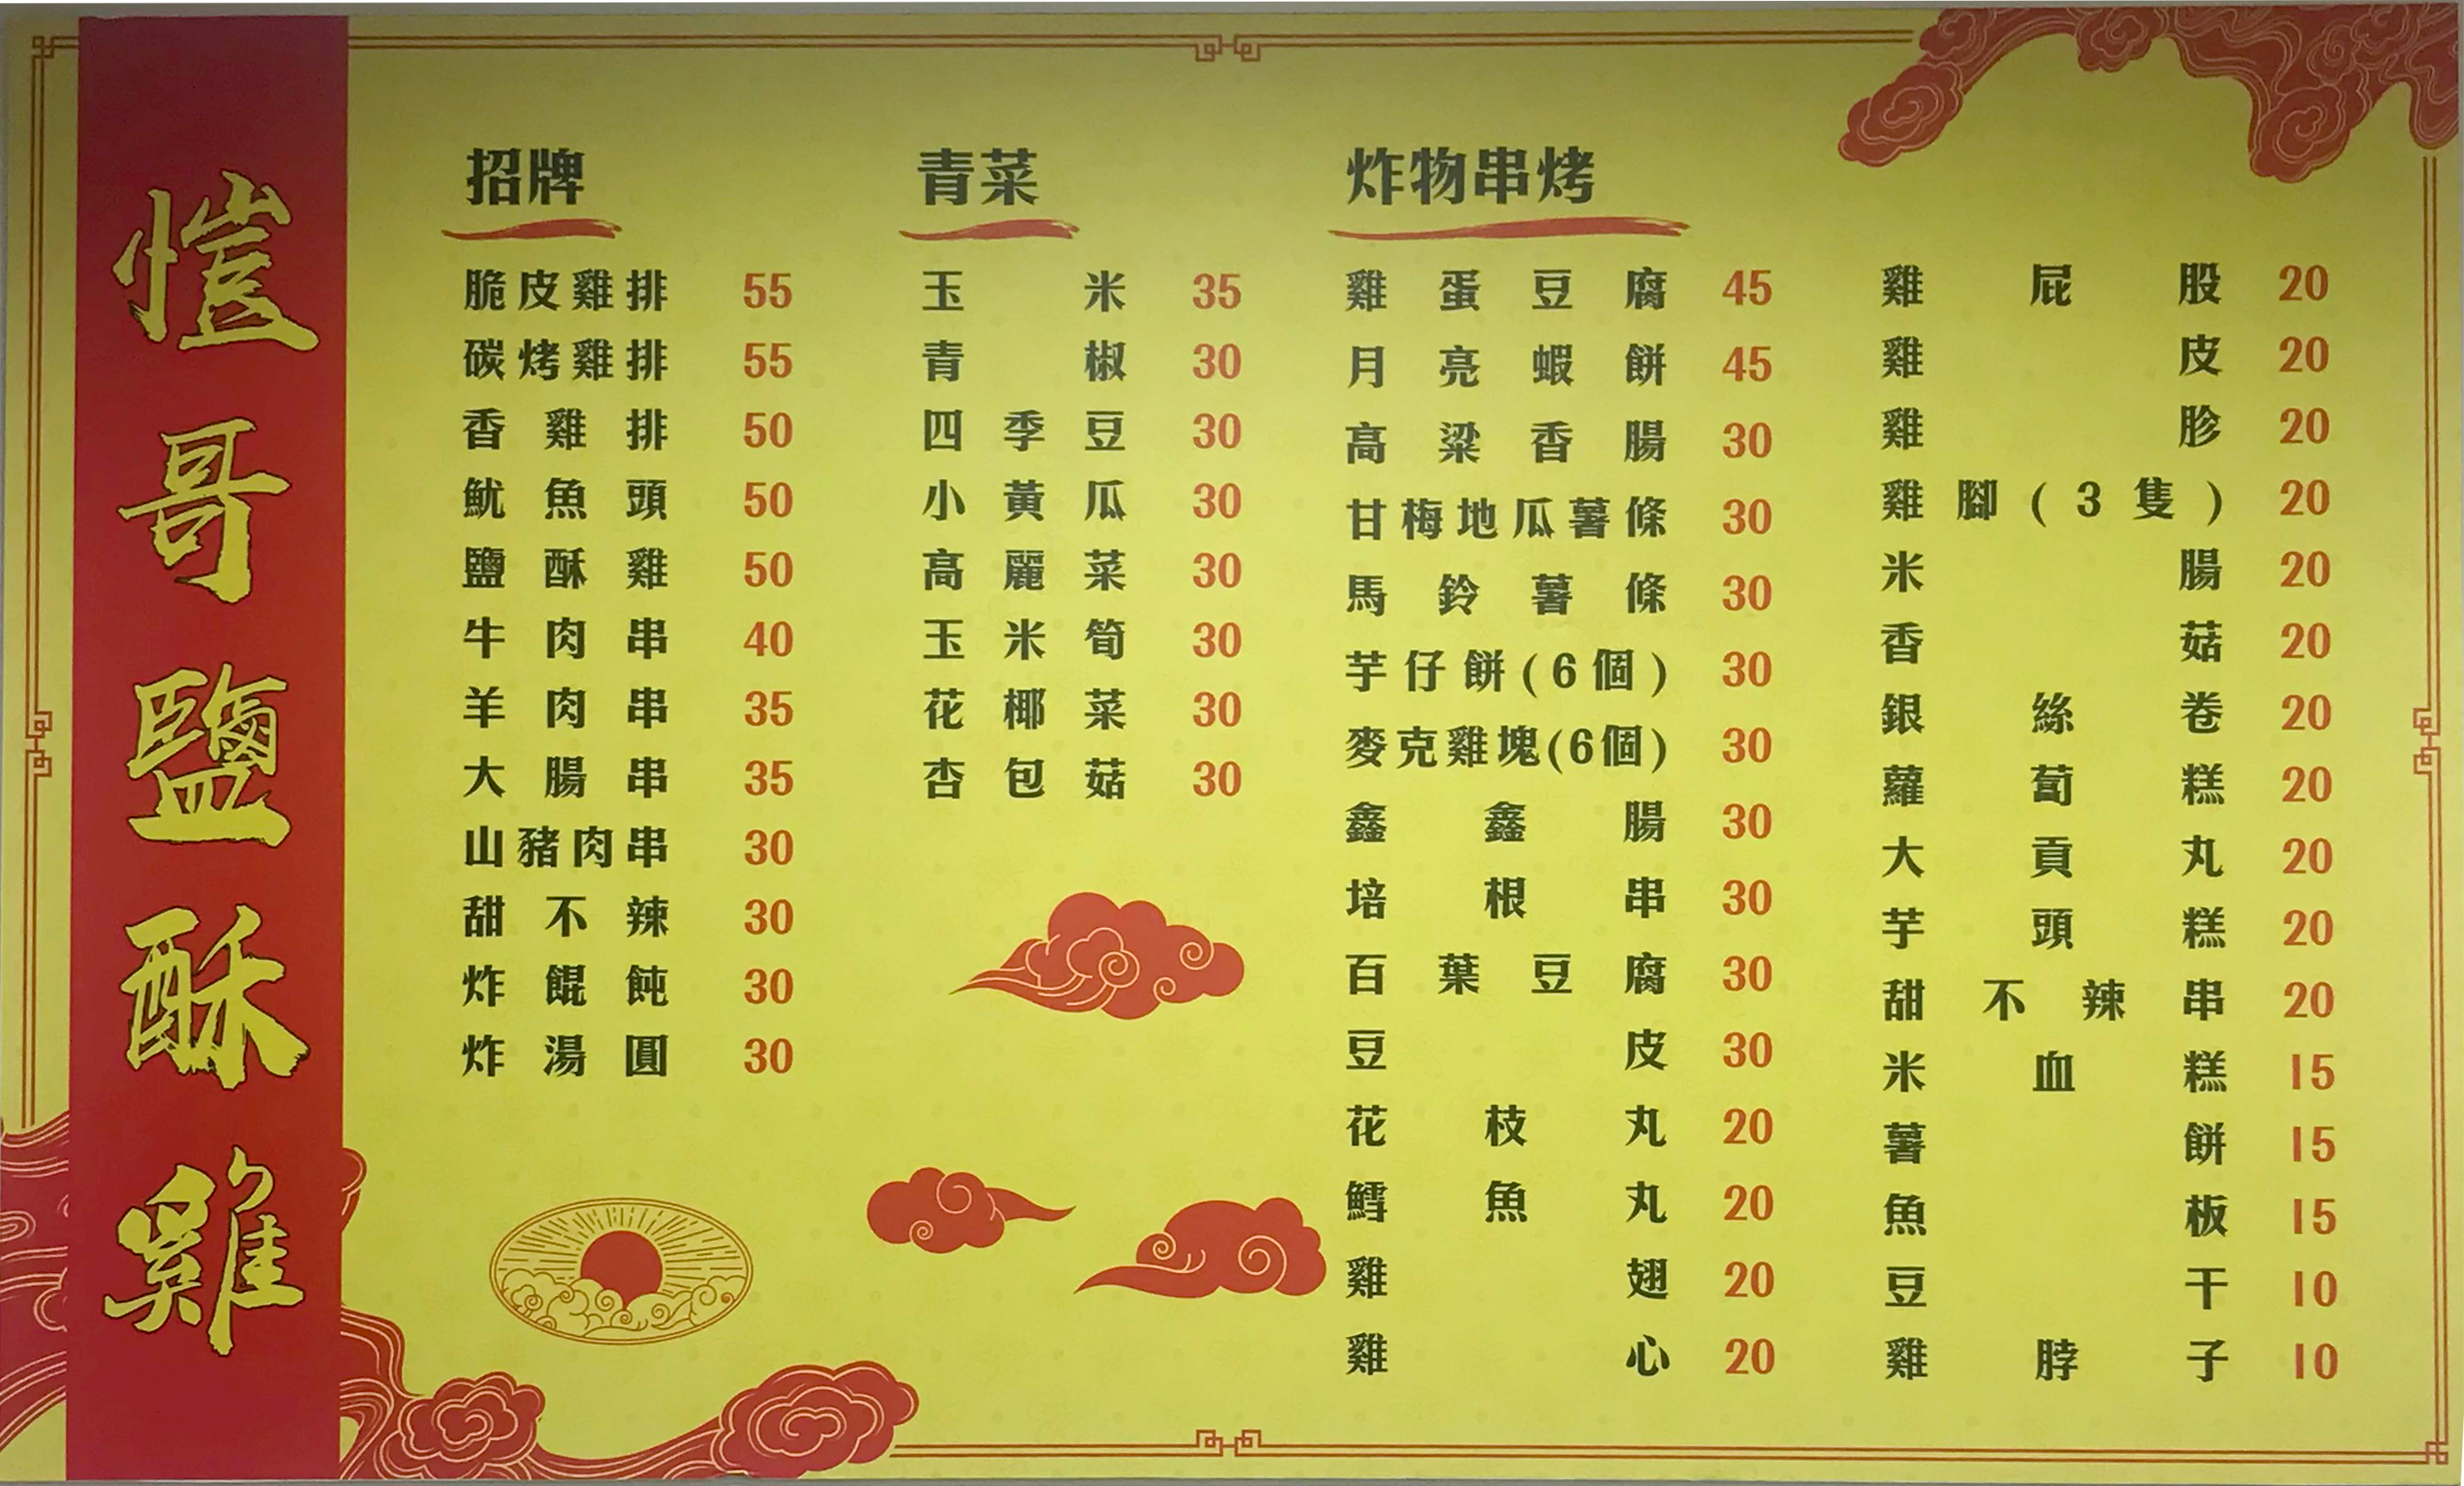 愷哥鹽酥雞
招牌
脆皮雞排 55
碳烤雞排 55
香雞排 50
魷魚頭 50
鹽酥雞 50
牛肉串 40
羊肉串 35
大腸串 35
山豬肉串 30
甜不辣 30
炸餛飩 30
炸湯圓 30
青菜
玉米 35
青椒 30
四季豆 30
小黃瓜 30
高麗菜 30
玉米筍 30
花椰菜 30
杏包菇 30
炸物串烤
雞蛋豆腐 45
月亮蝦餅 45
高粱香腸 30
甘梅地瓜薯條 30
馬鈴薯條 30
芋仔餅(6個) 30
麥克雞塊(6個) 30
鑫鑫腸 30
培根串 30
百葉豆腐 30
豆皮 30
花枝丸 20
鱈魚丸 20
雞翅 20
雞心 20
雞屁股 20
雞皮 20
雞胗 20
雞腳(3隻) 20
米腸 20
香菇 20
銀絲卷 20
蘿蔔糕 20
大貢丸 20
芋頭糕 20
甜不辣串 20
米血糕 15
薯餅 15
魚板 15
豆干 10
雞脖子 10